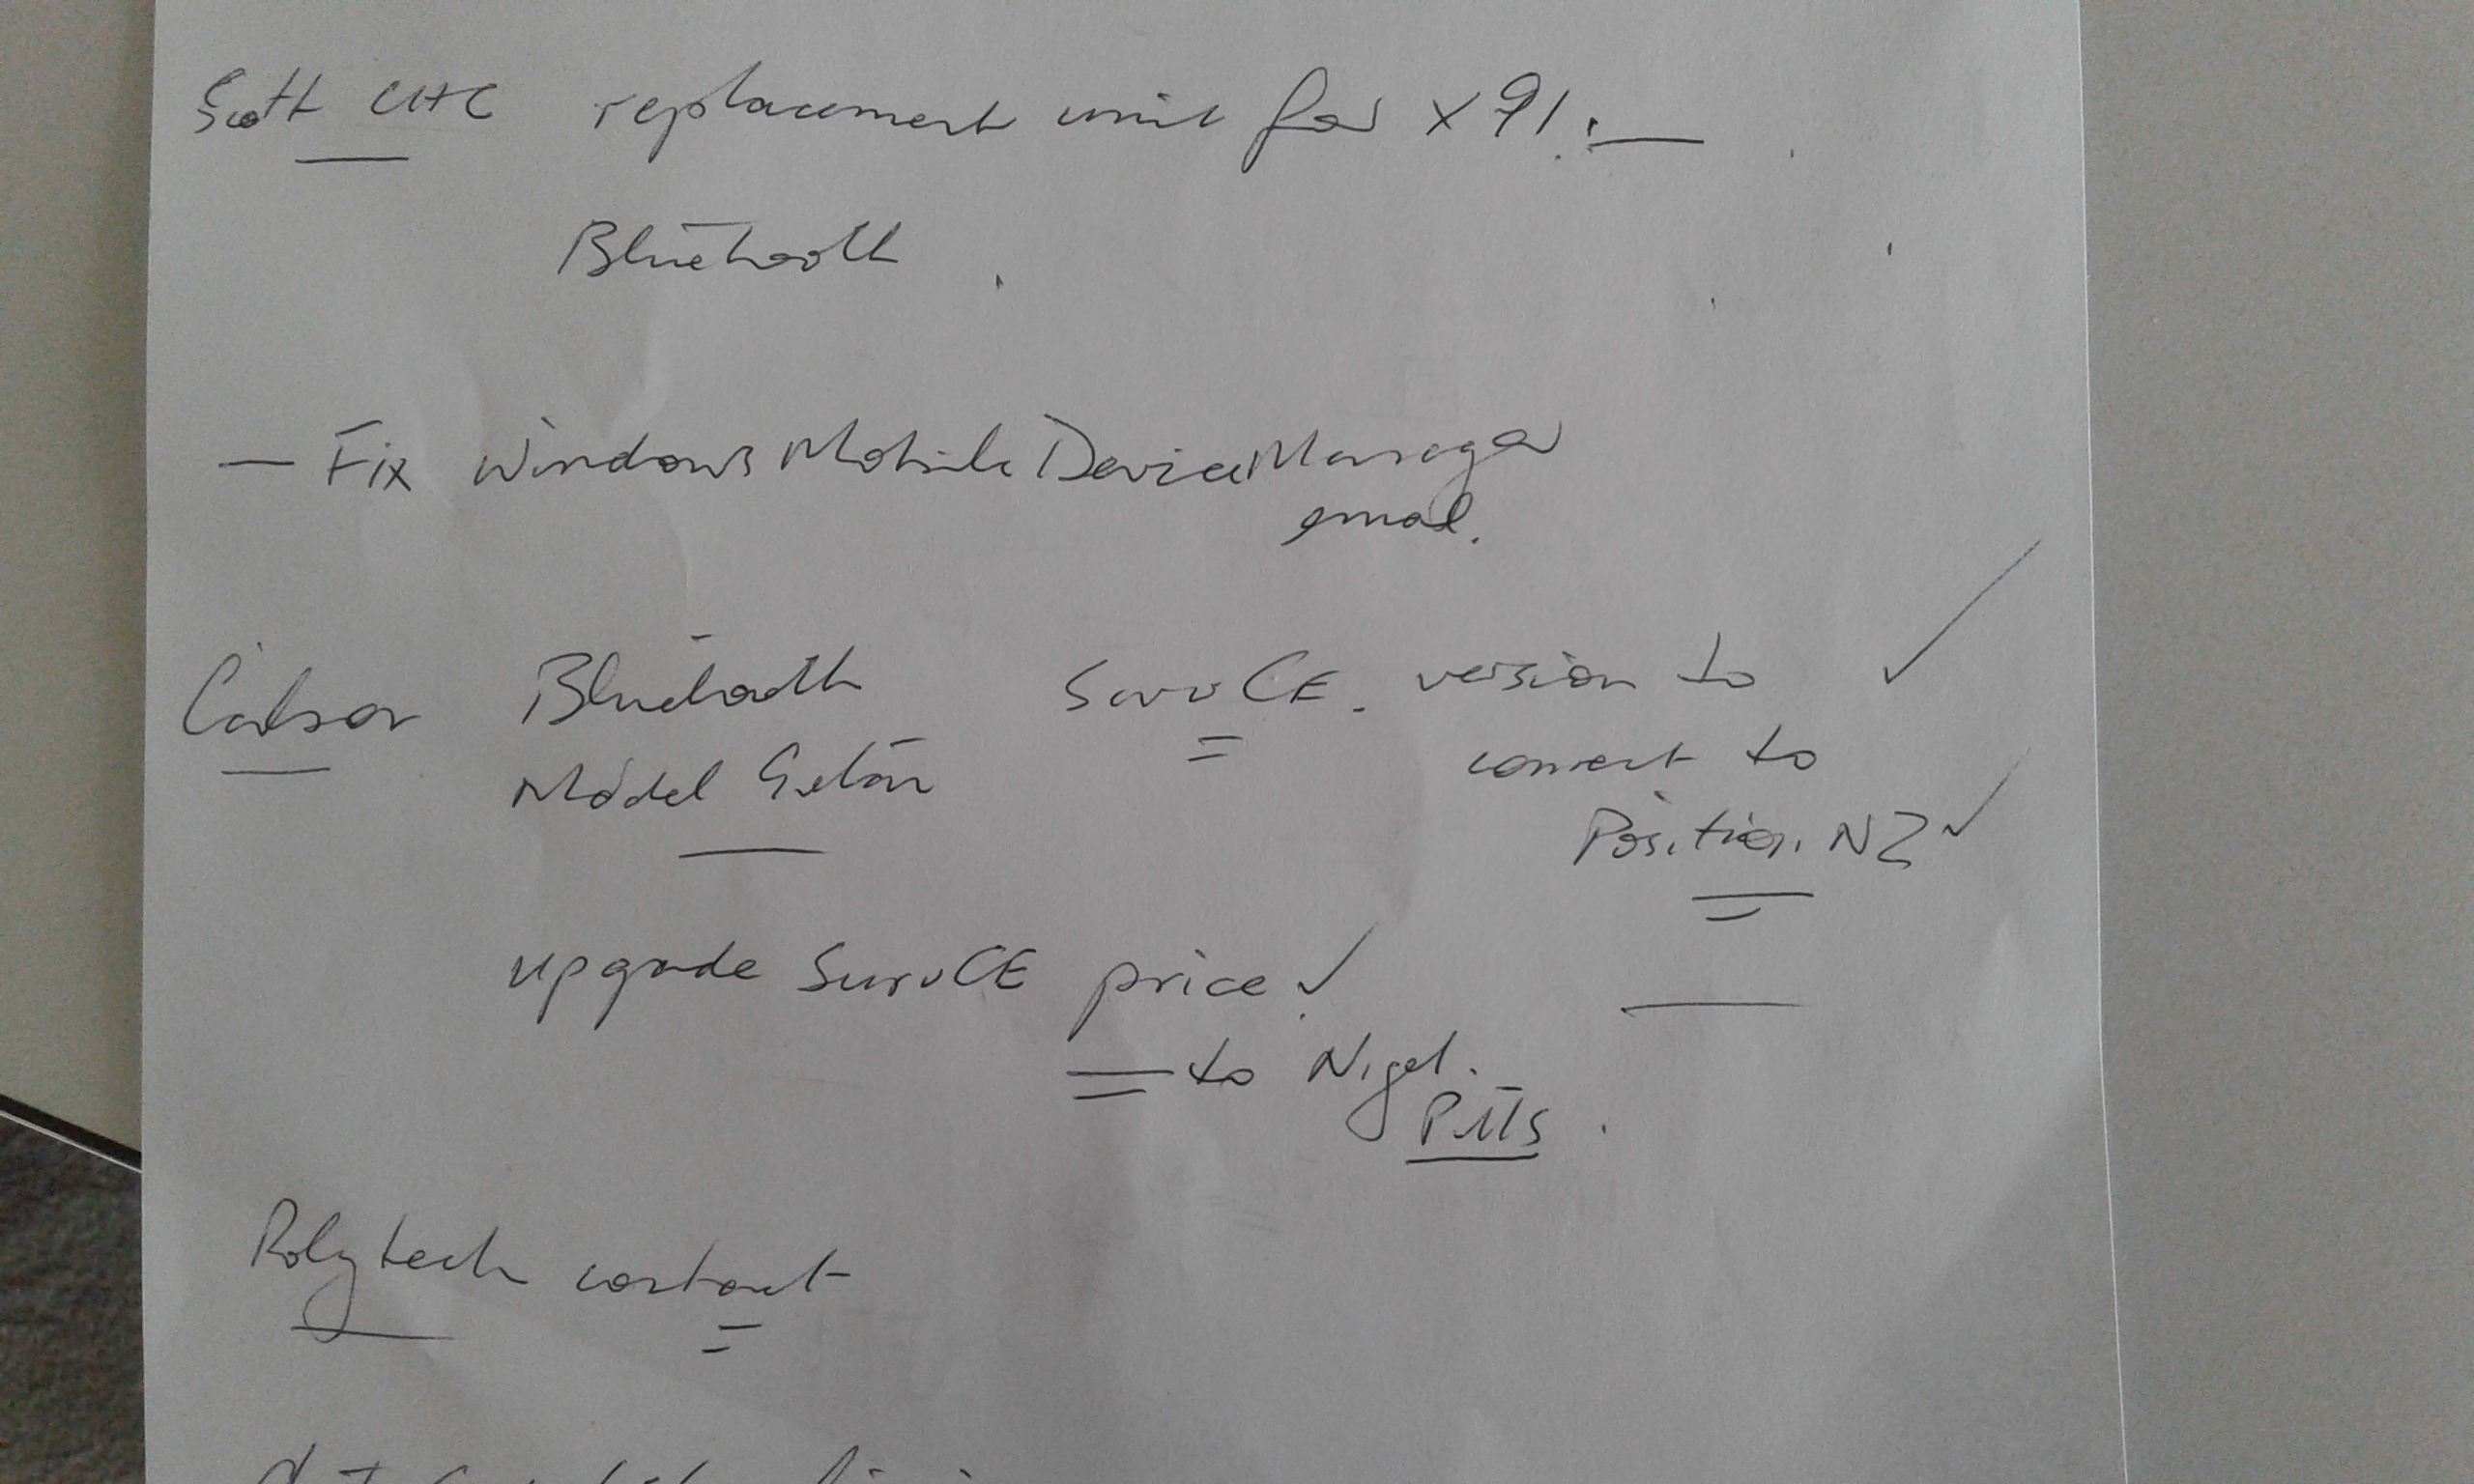 Scott CHC replacement unit for X91.
Bluetooth
— Fix Windows Mobile Device Manager
email.
Bluetooth SurvCE. version to ✓
Model connect to
Position NZ ✓
upgrade SurvCE price ✓
to Nigel.
Pitts.
Polytech contact